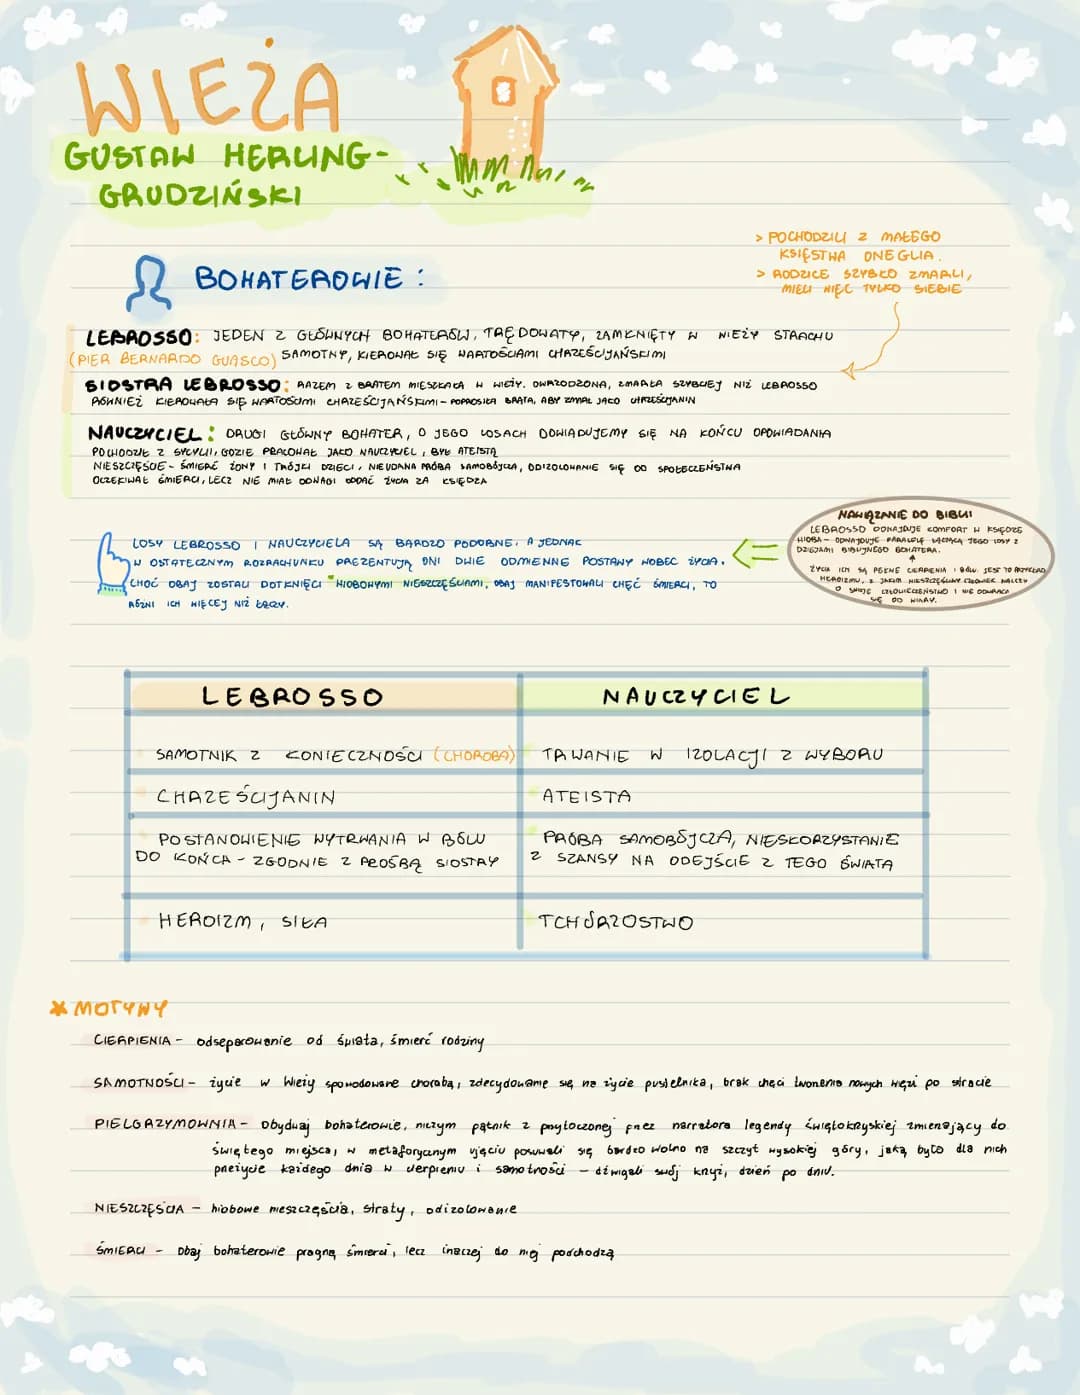 WIEŻA
GUSTAW HERLING-
GRUDZIŃSKI
> POCHODZILI Z MAŁEGO
KSIĘSTWA ONEGLIA.
> RODZICE SZYBKO ZMARLI,
MIELI WIĘC TYLKO SIEBIE
BOHATEROWIE:
LEBROSSO: JEDEN Z GŁÓWNYCH BOHATERÓW, TRĘDOWATY, ZAMKNIĘTY W WIEŻY STRACHU
(PIER BERNARDO GUASCO) SAMOTNY, KIEROWAŁ SIĘ WARTOŚCIAMI CHRZEŚCIJAŃSKIMI
SIOSTRA LEBROSSO: RAZEM Z BRATEM MIESZKAŁA W WIEŻY. OWRZODZONA, ZMARŁA SZYBCIEJ NIŻ LEBROSSO
RÓWNIEŻ KIEROWAŁA SIĘ WARTOŚCIAMI CHRZEŚCIJAŃSKIMI - POPROSIŁA BRATA, ABY ZMARŁ JAKO CHRZEŚCIJANIN
NAUCZYCIEL: DRUGI GŁÓWNY BOHATER, O JEGO LOSACH DOWIADUJEMY SIĘ NA KOŃCU OPOWIADANIA
POCHODZIŁ Z SYCYLII, GDZIE PRACOWAŁ JAKO NAUCZYCIEL, BYŁ ATEISTĄ
NIESZCZĘŚCIE - ŚMIERĆ ŻONY I TRÓJKI DZIECI, NIEUDANA PRÓBA SAMOBÓJCZA, ODIZOLOWANIE SIĘ OD SPOŁECZEŃSTWA
OCZEKIWAŁ ŚMIERCI, LECZ NIE MIAŁ ODWAGI ODDAĆ ŻYCIA ZA KSIĘDZA
LOSY LEBROSSO I NAUCZYCIELA SĄ BARDZO PODOBNE, A JEDNAK
W OSTATECZNYM ROZRACHUNKU PREZENTUJĄ ONI DWIE ODMIENNE POSTAWY WOBEC ŻYCIA.
CHOĆ OBAJ ZOSTALI DOTKNIĘCI "HIOBOWYMI NIESZCZĘŚCIAMI, OBAJ MANIFESTOWALI CHĘĆ ŚMIERCI, TO
RÓŻNI ICH WIĘCEJ NIŻ ŁĄCZY.
NAWIĄZANIE DO BIBLII
LEBROSSO ODNAJDUJE KOMFORT W KSIĘDZE
HIOBA - ODNAJDUJE PARALELĘ ŁĄCZĄCĄ JEGO LOSY Z
DZIEJAMI BIBLIJNEGO BOHATERA.
ŻYCIA ICH SĄ PEŁNE CIERPIENIA I BÓLU. JEST TO PRZYKŁAD
HEROIZMU, Z JAKIM NIESZCZĘŚLIWY CZŁOWIEK WALCZY
O SWOJE CZŁOWIECZEŃSTWO I NIE ODWRACA
SIĘ OD WIARY.
LEBROSSO NAUCZYCIEL
SAMOTNIK Z KONIECZNOŚCI (CHOROBA) TRWANIE W IZOLACJI Z WYBORU
CHRZEŚCIJANIN ATEISTA
POSTANOWIENIE WYTRWANIA W BÓLU PRÓBA SAMOBÓJCZA, NIESKORZYSTANIE
DO KOŃCA - ZGODNIE Z PROŚBĄ SIOSTRY Z SZANSY NA ODEJŚCIE Z TEGO ŚWIATA
HEROIZM, SIŁA TCHÓRZOSTWO
MOTYWY
CIERPIENIA - odseparowanie od świata, śmierć rodziny
SAMOTNOŚCI - życie w Wieży spowodowane chorobą, zdecydowanie się na życie pustelnika, brak chęci tworzenia nowych więzi po stracie
PIELGRZYMOWNIA - Obydwaj bohaterowie, niczym pątnik z przytoczonej przez narratora legendy świętokrzyskiej zmierzający do
świętego miejsca, w metaforycznym ujęciu posuwali się bardzo wolno na szczyt wysokiej góry, jaką było dla nich
przeżycie każdego dnia w cierpieniu i samotności - dźwigali swój krzyż, dzień po dniu.
NIESZCZĘŚCIA - hiobowe nieszczęścia, straty, odizolowanie
ŚMIERCI - Obaj bohaterowie pragną śmierci, lecz inaczej do niej podchodzą